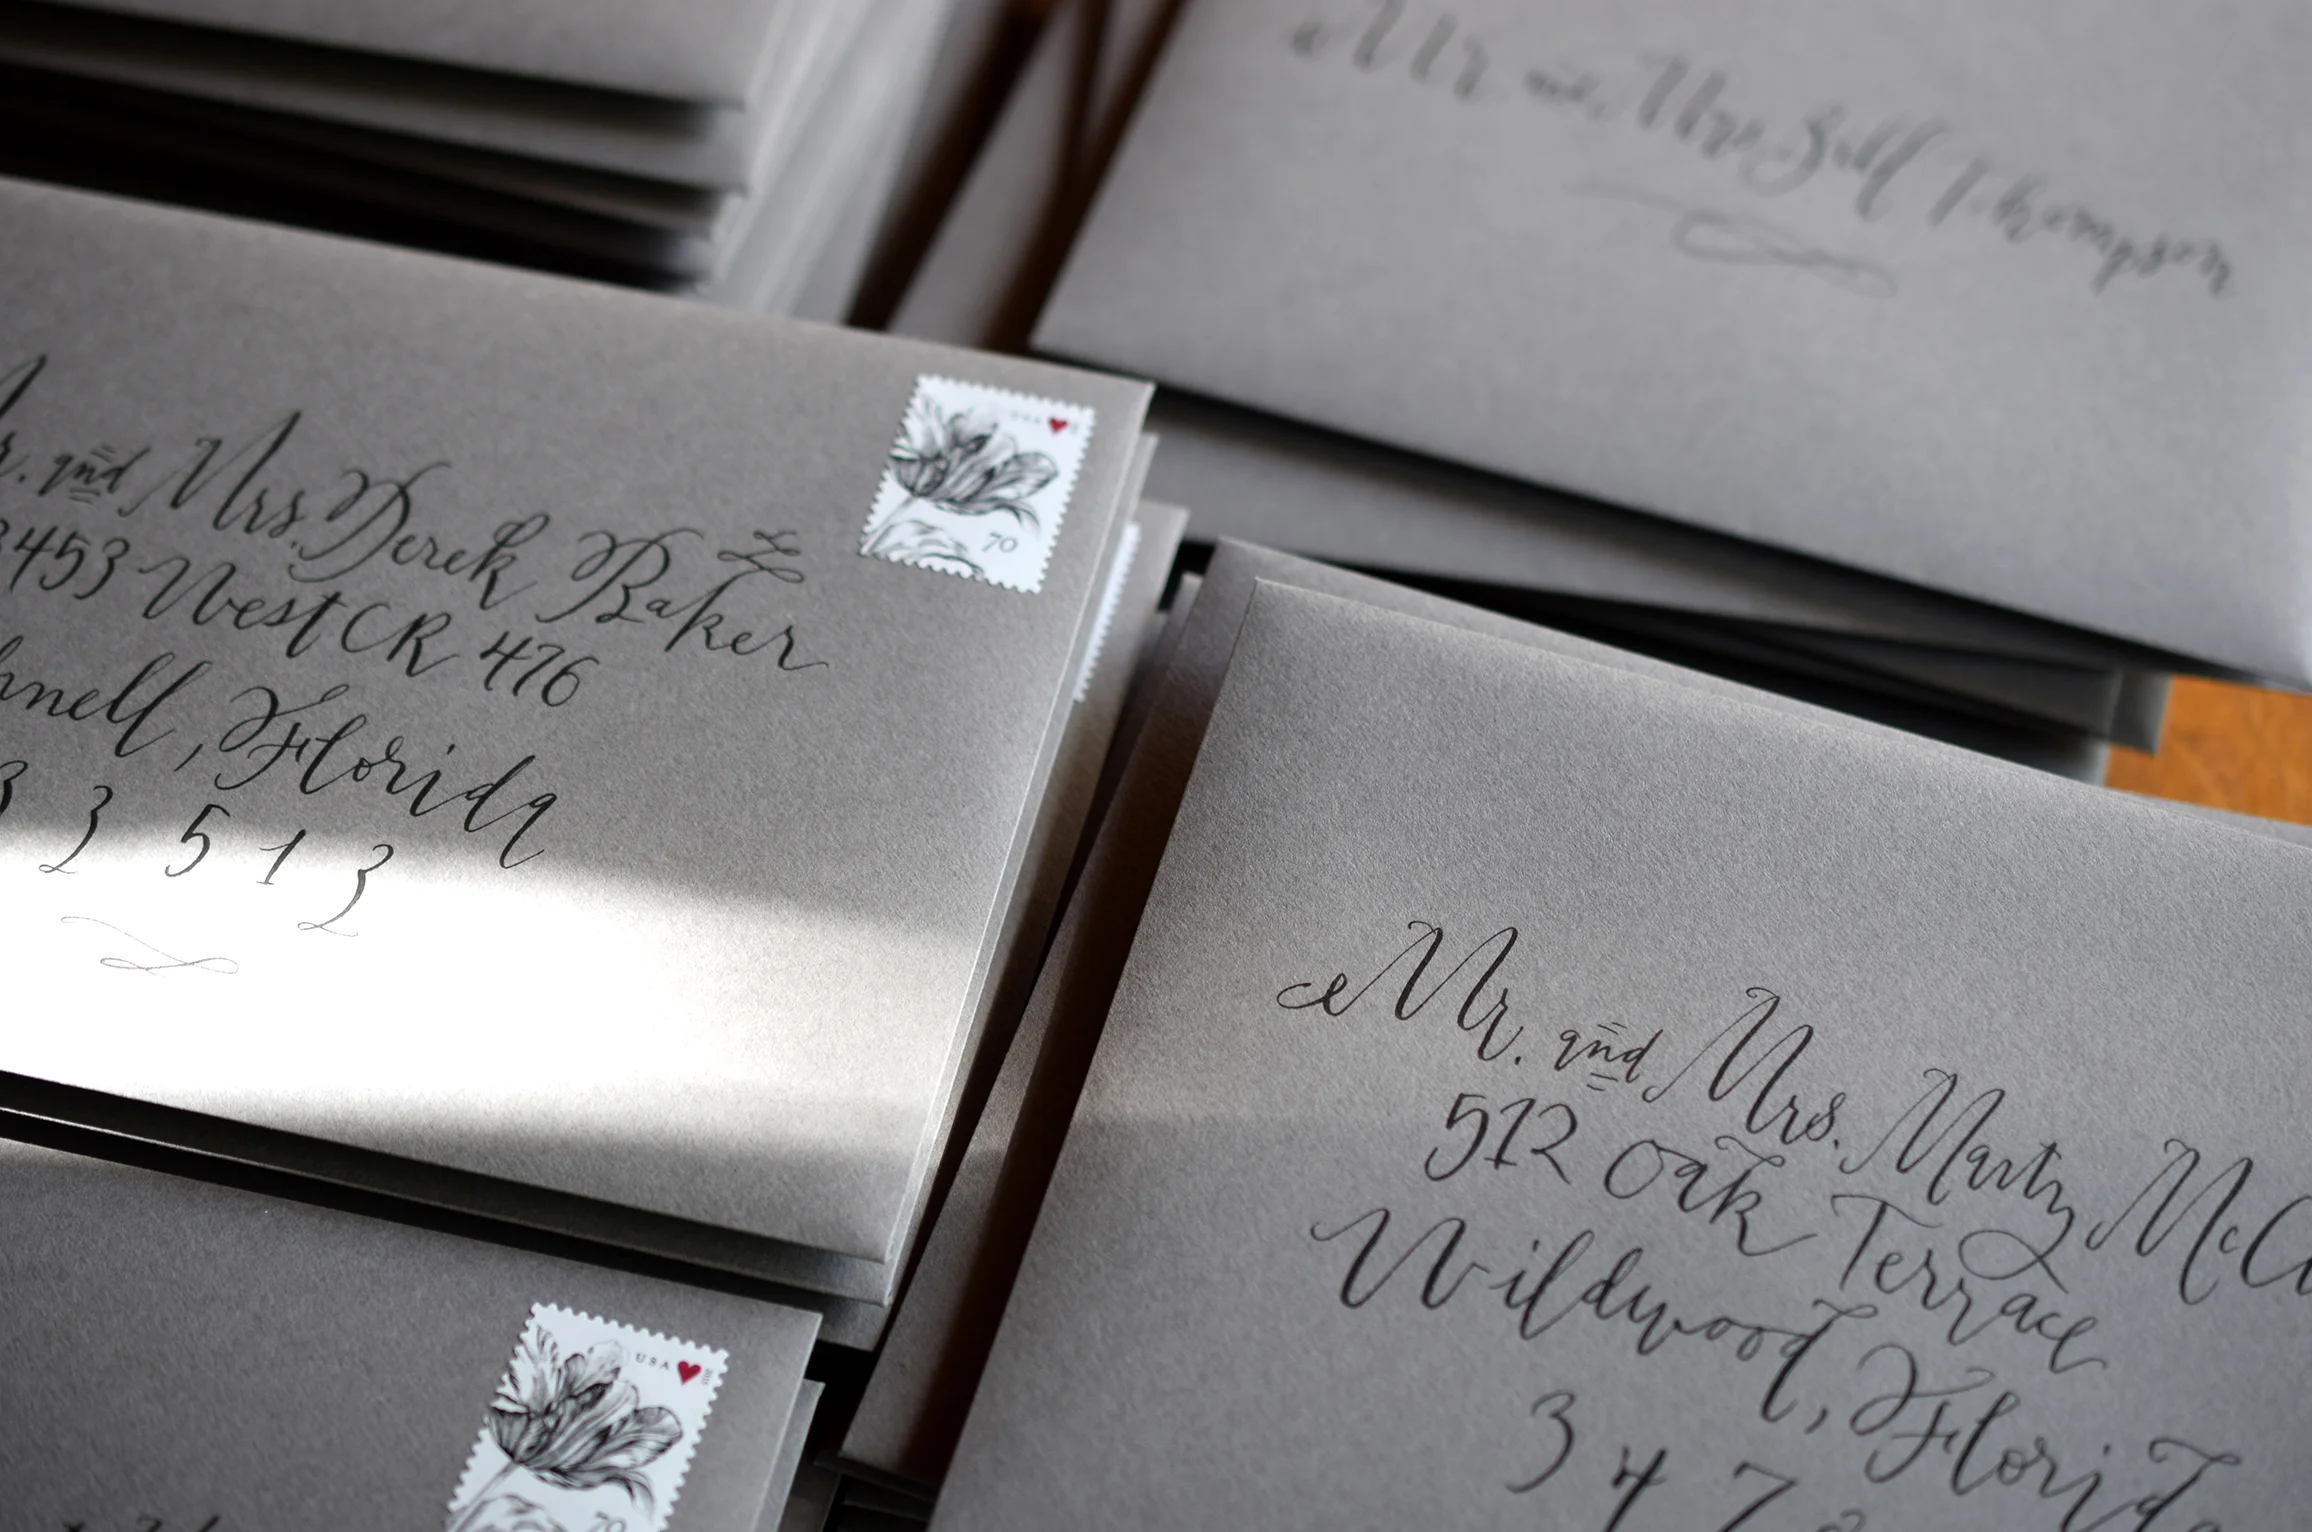 Mr and Mrs Bill Thompson
r. and Mrs. Derek Baker
3453 West CR 476
hnell, Florida
3 3 5 1 3
USA
70
Mr. and Mrs. Marty McC
512 Oak Terrace
Wildwood, Florida
3 4 7 8
USA
70